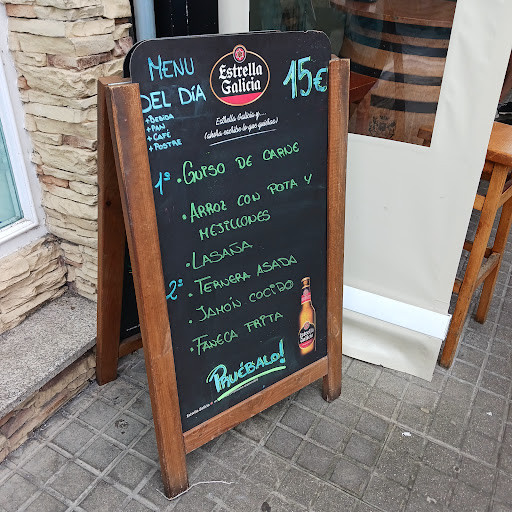 MENU
DEL DÍA
+BEBIDA
+PAN
+CAFÉ
+POSTRE
Estrella
Galicia
15€
Estrella Galicia y...
(ahora escribe lo que quieras)
1º • GUISO DE CARNE
• ARROZ CON POTA Y
MEJILLONES
• LASAÑA
2º • TERNERA ASADA
• JAMÓN COCIDO
• FANECA FRITA
PRUÉBALO!